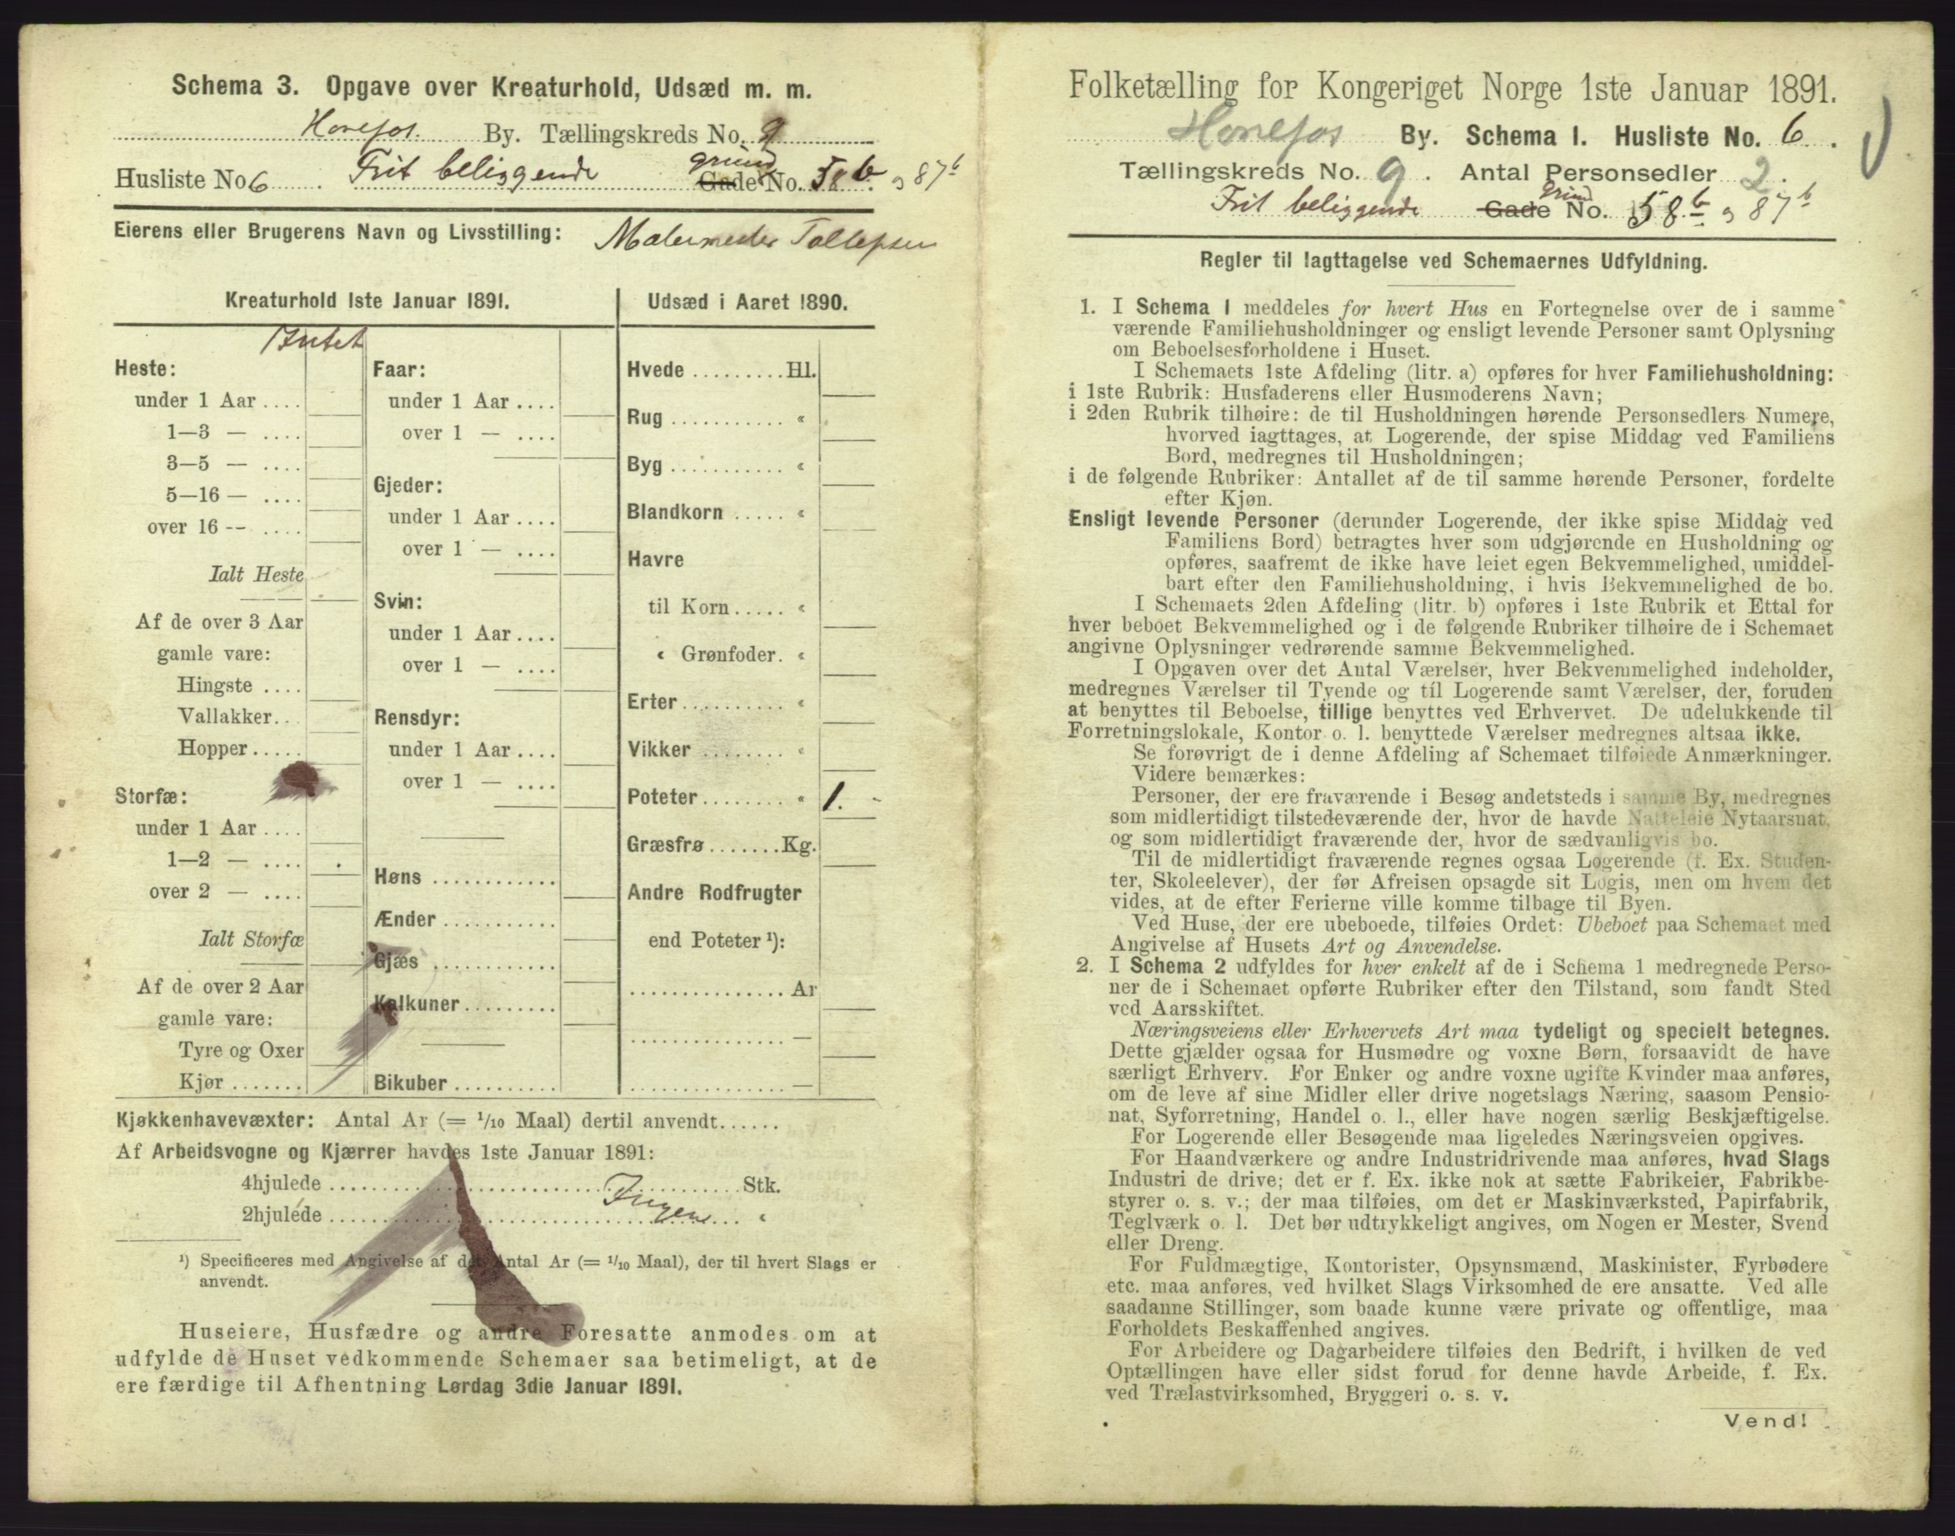 Schema 3. Opgave over Kreaturhold, Udsæd m. m.
Honefos By. Tællingskreds No. 9
Husliste No 6 Frit beliggende grund Gade No. 58 b og 87 b
Eierens eller Brugerens Navn og Livsstilling: Malermester Tollefsen
Kreaturhold 1ste Januar 1891.
Intet
Heste:
under 1 Aar ....
1—3 — ....
3—5 — ....
5—16 — ....
over 16 -- ....
Ialt Heste
Af de over 3 Aar
gamle vare:
Hingste ....
Vallakker...
Hopper.....
Storfæ:
under 1 Aar ....
1—2 — ....
over 2 — ....
Ialt Storfæ
Af de over 2 Aar
gamle vare:
Tyre og Oxer
Kjør .......
Faar:
under 1 Aar ....
over 1 — ....
Gjeder:
under 1 Aar ....
over 1 — ....
Svin:
under 1 Aar ....
over 1 — ....
Rensdyr:
under 1 Aar ....
over 1 — ....
Høns ............
Ænder ...........
Gjæs ............
Kalkuner .........
Bikuber ..........
Udsæd i Aaret 1890.
Hvede .........Hl.
Rug ........... «
Byg ........... «
Blandkorn ..... «
Havre
til Korn ..... «
« Grønfoder. «
Erter .......... «
Vikker ........ «
Poteter ........ « 1. -
Græsfrø .......Kg.
Andre Rodfrugter
end Poteter ¹):
............... Ar
............... —
............... —
Kjøkkenhavevæxter: Antal Ar (= 1/10 Maal) dertil anvendt......
Af Arbeidsvogne og Kjærrer havdes 1ste Januar 1891:
4hjulede ........................................Stk.
2hjulede ........................................ «
Ingen
¹) Specificeres med Angivelse af det Antal Ar (= 1/10 Maal), der til hvert Slags er
anvendt.
Huseiere, Husfædre og andre Foresatte anmodes om at
udfylde de Huset vedkommende Schemaer saa betimeligt, at de
ere færdige til Afhentning Lørdag 3die Januar 1891.
Folketælling for Kongeriget Norge 1ste Januar 1891.
Honefos By. Schema I. Husliste No. 6.
Tællingskreds No. 9. Antal Personsedler 2.
Frit beliggende Gade grund No. 58 b og 87 b
Regler til Iagttagelse ved Schemaernes Udfyldning.
1. I Schema I meddeles for hvert Hus en Fortegnelse over de i samme
værende Familiehusholdninger og ensligt levende Personer samt Oplysning
om Beboelsesforholdene i Huset.
I Schemaets 1ste Afdeling (litr. a) opføres for hver Familiehusholdning:
i 1ste Rubrik: Husfaderens eller Husmoderens Navn;
i 2den Rubrik tilhøire: de til Husholdningen hørende Personsedlers Numere,
hvorved iagttages, at Logerende, der spise Middag ved Familiens
Bord, medregnes til Husholdningen;
i de følgende Rubriker: Antallet af de til samme hørende Personer, fordelte
efter Kjøn.
Ensligt levende Personer (derunder Logerende, der ikke spise Middag ved
Familiens Bord) betragtes hver som udgjørende en Husholdning og
opføres, saafremt de ikke have leiet egen Bekvemmelighed, umiddel-
bart efter den Familiehusholdning, i hvis Bekvemmelighed de bo.
I Schemaets 2den Afdeling (litr. b) opføres i 1ste Rubrik et Ettal for
hver beboet Bekvemmelighed og i de følgende Rubriker tilhøire de i Schemaet
angivne Oplysninger vedrørende samme Bekvemmelighed.
I Opgaven over det Antal Værelser, hver Bekvemmelighed indeholder,
medregnes Værelser til Tyende og til Logerende samt Værelser, der, foruden
at benyttes til Beboelse, tillige benyttes ved Erhvervet. De udelukkende til
Forretningslokale, Kontor o. l. benyttede Værelser medregnes altsaa ikke.
Se forøvrigt de i denne Afdeling af Schemaet tilføiede Anmærkninger.
Videre bemærkes:
Personer, der ere fraværende i Besøg andetsteds i samme By, medregnes
som midlertidigt tilstedeværende der, hvor de havde Natteleie Nytaarsnat,
og som midlertidigt fraværende der, hvor de sædvanligvis bo.
Til de midlertidigt fraværende regnes ogsaa Logerende (f. Ex. Studen-
ter, Skoleelever), der før Afreisen opsagde sit Logis, men om hvem det
vides, at de efter Ferierne ville komme tilbage til Byen.
Ved Huse, der ere ubeboede, tilføies Ordet: Ubeboet paa Schemaet med
Angivelse af Husets Art og Anvendelse.
2. I Schema 2 udfyldes for hver enkelt af de i Schema 1 medregnede Perso-
ner de i Schemaet opførte Rubriker efter den Tilstand, som fandt Sted
ved Aarsskiftet.
Næringsveiens eller Erhvervets Art maa tydeligt og specielt betegnes.
Dette gjælder ogsaa for Husmødre og voxne Børn, forsaavidt de have
særligt Erhverv. For Enker og andre voxne ugifte Kvinder maa anføres,
om de leve af sine Midler eller drive nogetslags Næring, saasom Pensio-
nat, Syforretning, Handel o. l., eller have nogen særlig Beskjæftigelse.
For Logerende eller Besøgende maa ligeledes Næringsveien opgives.
For Haandværkere og andre Industridrivende maa anføres, hvad Slags
Industri de drive; det er f. Ex. ikke nok at sætte Fabrikeier, Fabrikbe-
styrer o. s. v.; der maa tilføies, om det er Maskinværksted, Papirfabrik,
Teglværk o. l. Det bør udtrykkeligt angives, om Nogen er Mester, Svend
eller Dreng.
For Fuldmægtige, Kontorister, Opsynsmænd, Maskinister, Fyrbødere
etc. maa anføres, ved hvilket Slags Virksomhed de ere ansatte. Ved alle
saadanne Stillinger, som baade kunne være private og offentlige, maa
Forholdets Beskaffenhed angives.
For Arbeidere og Dagarbeidere tilføies den Bedrift, i hvilken de ved
Optællingen have eller sidst forud for denne havde Arbeide, f. Ex.
ved Trælastvirksomhed, Bryggeri o. s. v.
Vend!